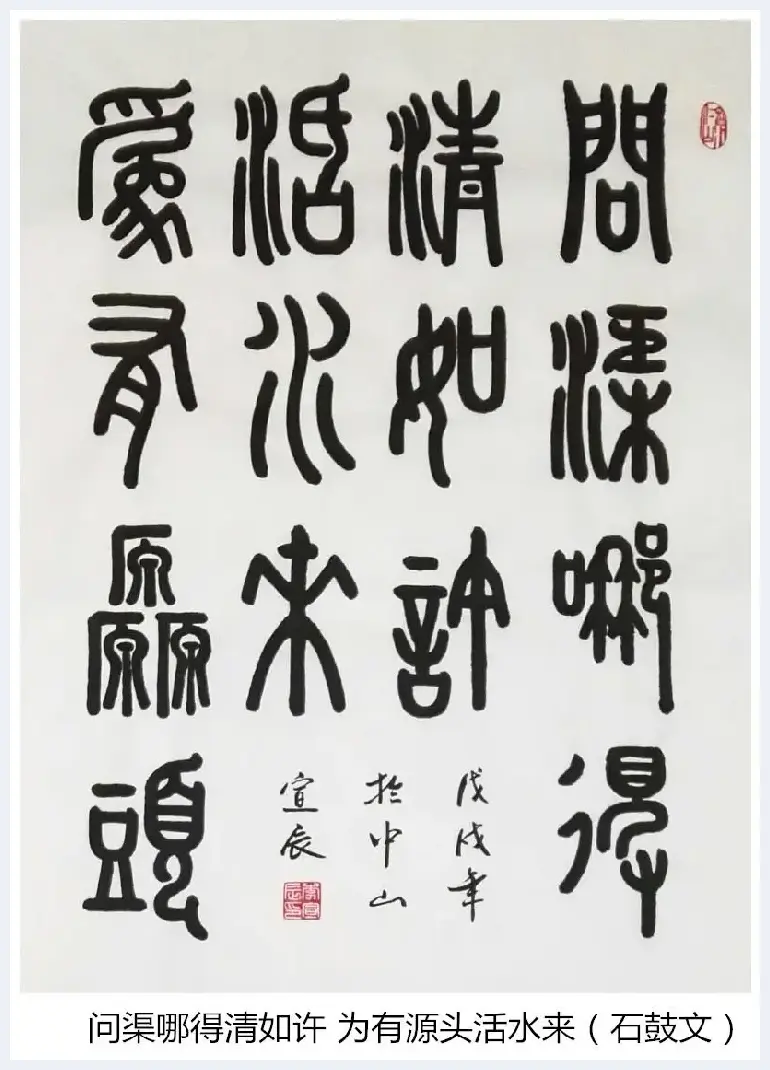 問渠哪得
清如許
為有厵頭
活水来
戊戌年
於中山
宣辰
问渠哪得清如许 为有源头活水来（石鼓文）